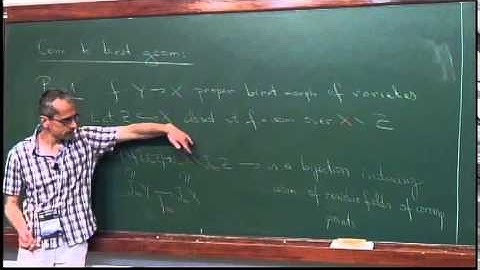 Conn to birat geom:
f Y → X proper birat morph of varieties
Let Z ↪ X closed st f isom over X \ Z
J∞Z → is a bijection inducing
J∞Y → J∞X isom of residue fields of corresp
f∞ points